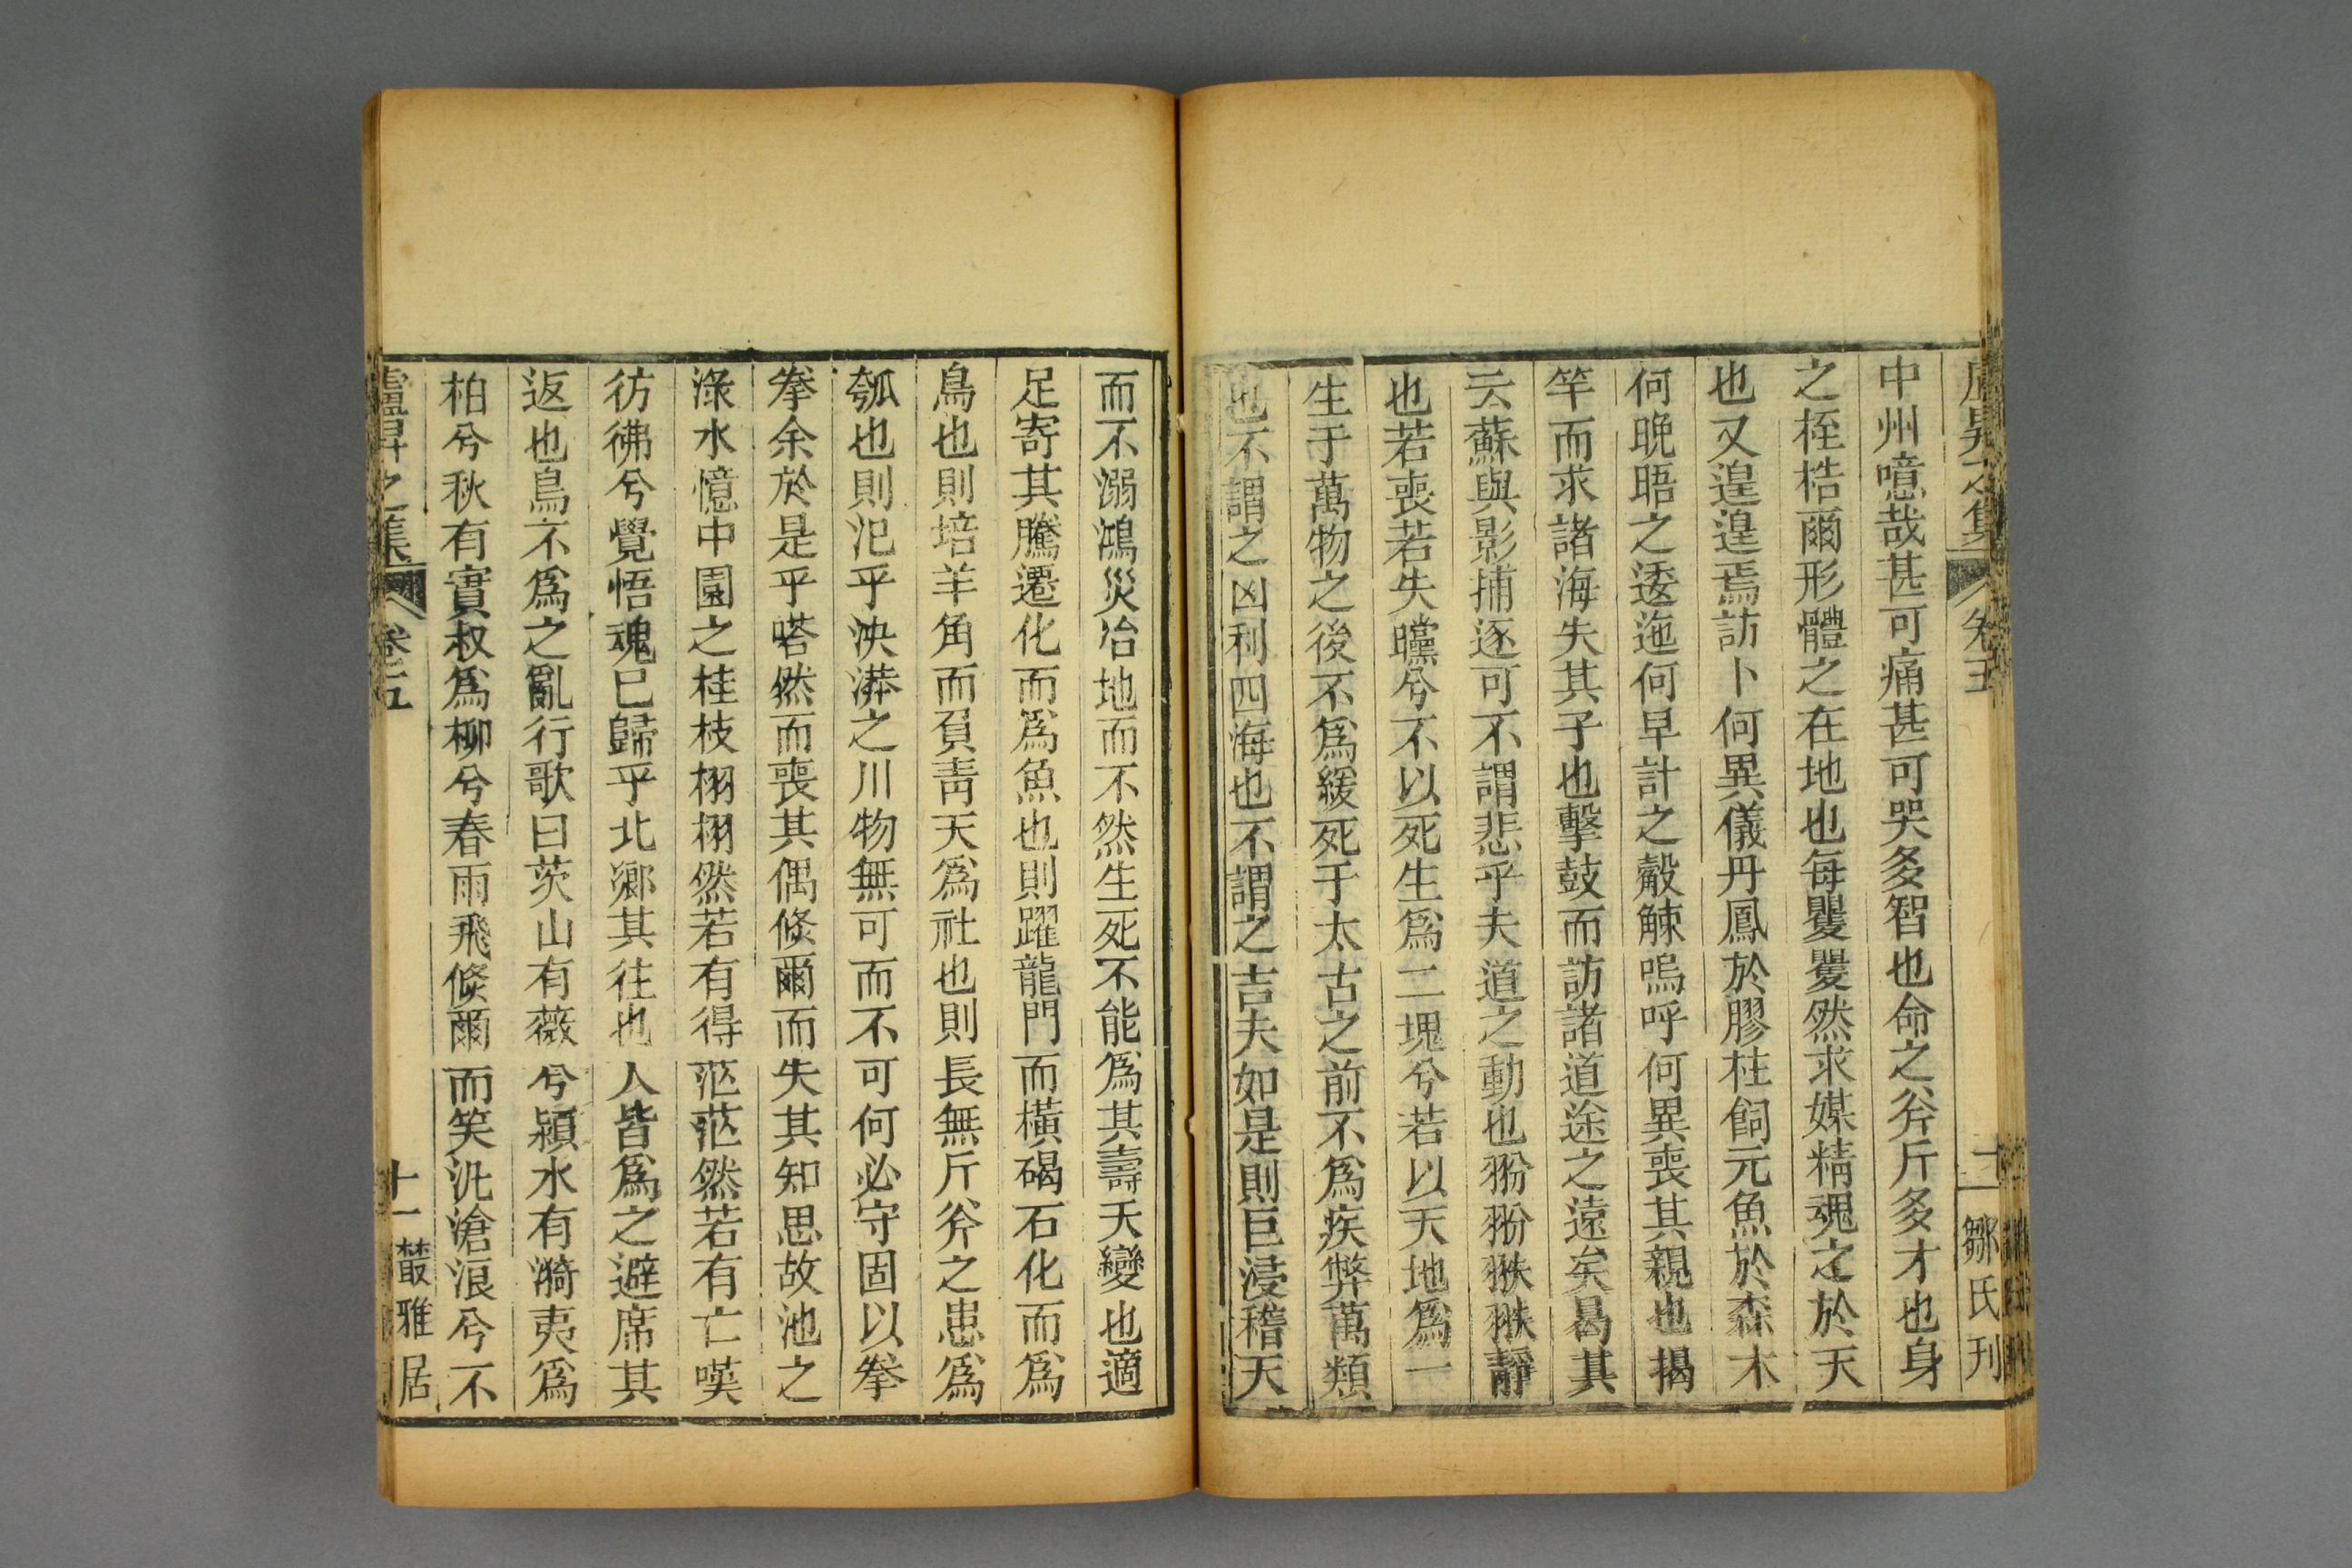 盧昇之集 卷五 十 鄒氏刋
中州噫哉甚可痛甚可哭多智也命之斧斤多才也身
之桎梏爾形體之在地也每矍矍然求媒精魂之於天
也又遑遑焉訪卜何異儀丹鳳於膠柱飼元魚於森木
何晩晤之逶迤何早計之觳觫嗚呼何異喪其親也揭
竿而求諸海失其子也擊鼓而訪諸道途之遠矣曷其
云蘇與影捕逐可不謂悲乎夫道之動也翂翂翐翐靜
也若喪若失曭兮不以死生爲二塊兮若以天地爲一
生于萬物之後不爲緩死于太古之前不爲疾弊萬類
也不謂之凶利四海也不謂之吉夫如是則巨浸稽天
而不溺鴻災冶地而不然生死不能爲其壽夭變也適
足寄其騰遷化而爲魚也則躍龍門而橫碣石化而爲
鳥也則培羊角而負靑天爲社也則長無斤斧之患爲
瓠也則汜乎泱漭之川物無可而不可何必守固以拳
拳余於是乎嗒然而喪其偶倏爾而失其知思故池之
淥水憶中園之桂枝栩栩然若有得茫茫然若有亡嘆
彷彿兮覺悟魂已歸乎北鄉其往也人皆爲之避席其
返也鳥不爲之亂行歌曰茨山有薇兮潁水有漪夷爲
柏兮秋有實叔爲柳兮春雨飛倏爾而笑汎滄浪兮不
盧昇之集 卷五 十一 叢雅居